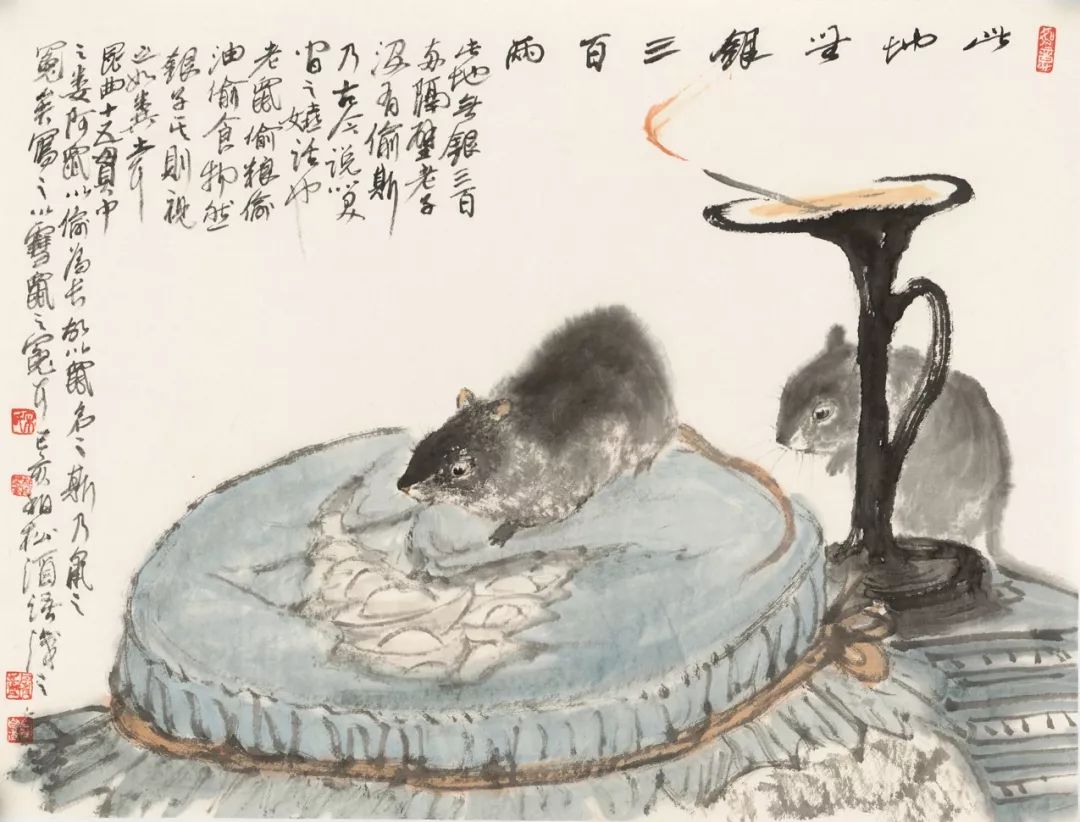 此地無銀三百兩
此地無銀三百
兩隔壁老子
没有偷斯
乃古今說笑
間之嬉話也
老鼠偷粮偷
油偷食物然
銀子其則視
之如糞土耳
昆曲十五貫中
之婁阿鼠以偷為長故以鼠名之斯乃鼠之
冤矣寫之以雪鼠之冤耳己亥柏松酒語識之